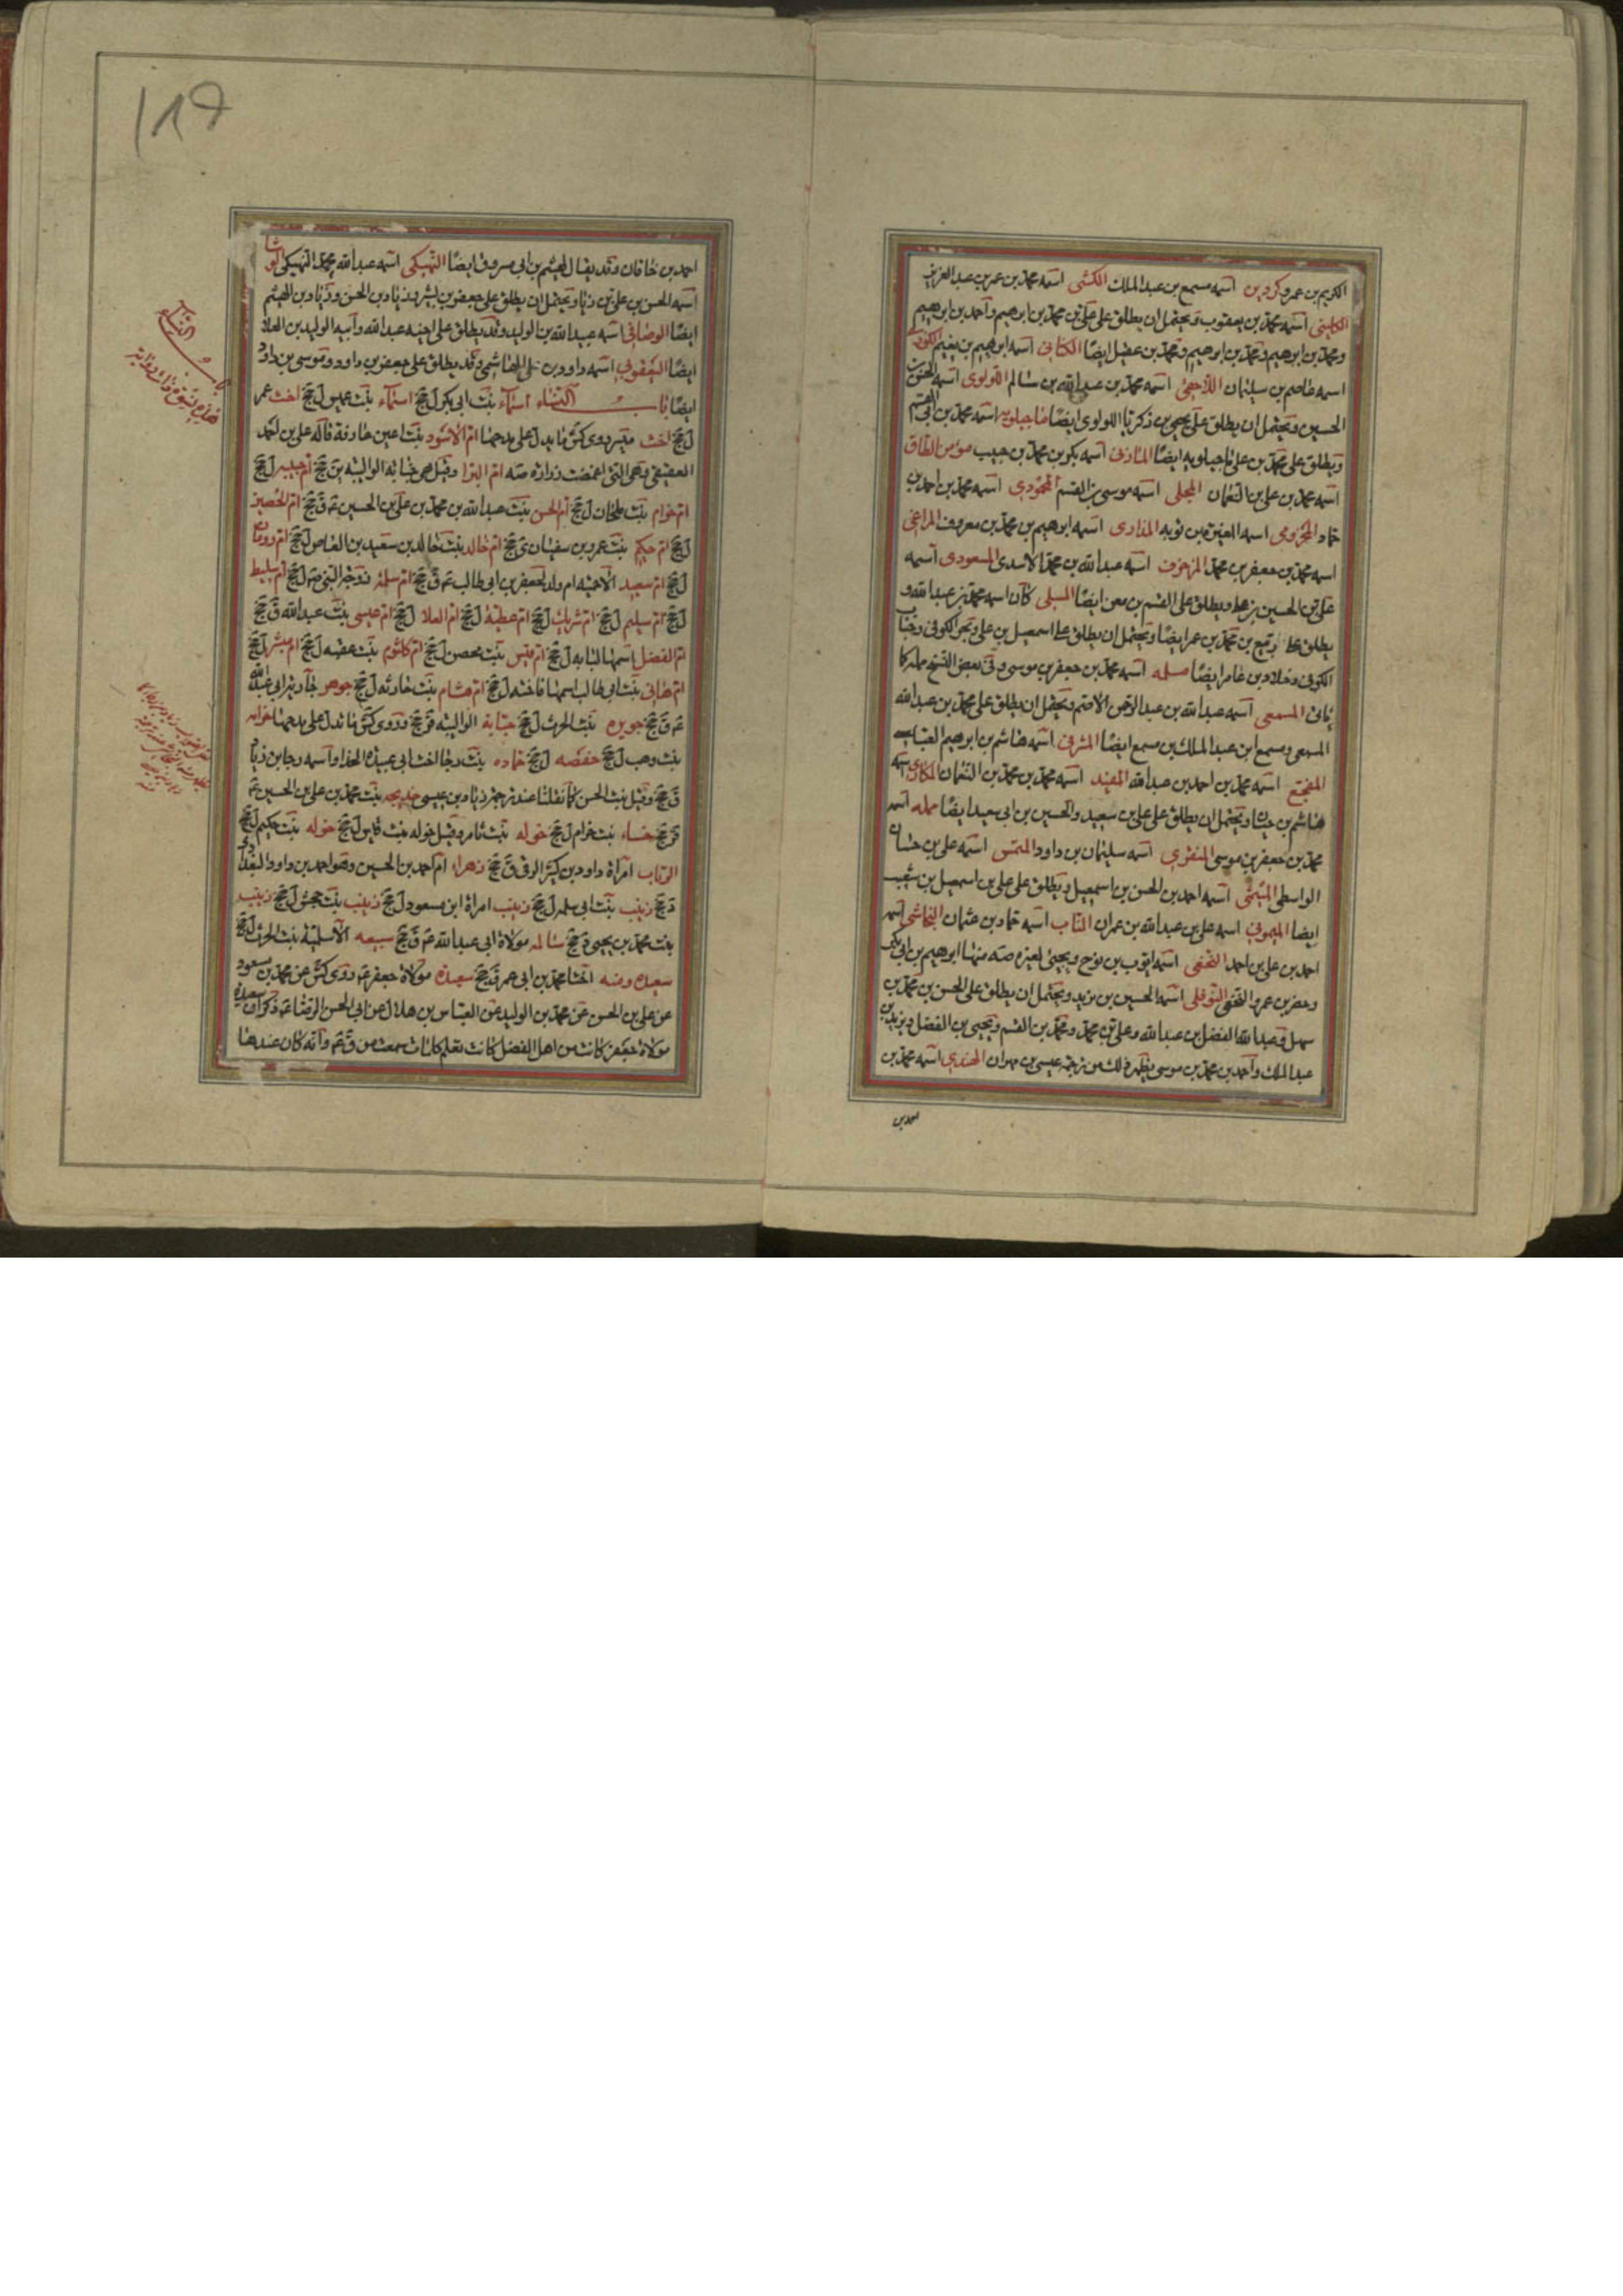 الكريم بن عمرو كردين اسمه مسمع بن عبد الملك الكشى اسمه محمد بن عمر بن عبد العزيز
الكلينى اسمه محمد بن يعقوب ويحتمل ان يطلق على على بن محمد بن ابرهيم واحمد بن ابرهيم
ومحمد بن ابرهيم ومحمد بن ابرهيم ومحمد بن عقيل ايضا الكنانى اسمه ابرهيم بن نعيم
اسمه عاصم بن سليمان اللاحقى اسمه محمد بن عبد الله بن سالم اللؤلوى اسمه الحسن بن
الحسين ويحتمل ان يطلق على يحيى بن زكريا اللولوى ايضا ماجيلويه اسمه محمد بن ابى القسم
ويطلق على محمد بن على ماجيلويه ايضا المازنى اسمه بكر بن محمد بن حبيب مؤمن الطاق
اسمه محمد بن على بن النعمان المجلى اسمه موسى بن القسم المحمودى اسمه محمد بن احمد بن
حماد المخزومى اسمه المغيرة بن توبه المذارى اسمه ابرهيم بن محمد بن معروف المراغى
اسمه محمد بن جعفر بن محمد المزخرف اسمه عبد الله بن محمد الاسدى المسعودى اسمه
على بن الحسين بن على ويطلق على القسم بن معن ايضا المسلى كان اسمه محمد بن عبد الله و
يطلق على ربيع بن محمد بن عمر ايضا ويحتمل ان يطلق على اسمعيل بن على وبحر الكوفى وخباب
الكوفى وخلاد بن عامر ايضا مسلمه اسمه محمد بن جعفر بن موسى وفى بعض النسخ مملة كما
يأتى المسمعى اسمه عبد الله بن عبد الرحمن الاصم ويحتمل ان يطلق على محمد بن عبد الله
المسمعى ومسمع ابن عبد الملك بن مسمع ايضا المشرقى اسمه هاشم بن ابرهيم العباسى
المفجع اسمه محمد بن احمد بن عبد الله المفيد اسمه محمد بن محمد بن النعمان المكارى اسمه
هاشم بن حيان ويحتمل ان يطلق على على بن سعيد والحسين بن ابى سعيد ايضا مملة اسمه
محمد بن جعفر بن موسى المنقرى اسمه سليمان بن داود المنمس اسمه على بن حسان
الواسطى الميثمى اسمه احمد بن الحسن بن اسمعيل ويطلق على على بن اسمعيل بن شعيب
ايضا الميمونى اسمه على بن عبد الله بن عمران الناب اسمه حماد بن عثمان النجاشى اسمه
احمد بن على بن احمد النخعى اسمه ايوب بن نوح ويجيئ لغيره منها ابرهيم بن ابى بكر
وخضر بن عمرو النخعى النوفلى اسمه الحسين بن يزيد ويحتمل ان يطلق على الحسن بن محمد بن
سهل وعبد الله الفضل بن عبد الله وعلى بن محمد ومحمد بن القسم ويحيى بن الفضل ويزيد بن
عبد الملك واحمد بن محمد بن موسى يظهر ذلك من ترجمة عيسى بن مهران الهندى اسمه محمد بن
احمد بن
احمد بن خاقان وقد يقال لهيثم بن ابى مسروق ايضا النهيكى اسمه عبد الله بن محمد النهيكى الوشا
اسمه الحسن بن على بن زياد ويحتمل ان يطلق على جعفر بن بشير وزياد بن الحسن وزياد بن الهيثم
ايضا الوصافى اسمه عبيد الله بن الوليد وقد يطلق على اخيه عبد الله وابيه الوليد بن العلا
ايضا اليعقوبى اسمه داود بن على الهاشمى وقد يطلق على جعفر بن داود وموسى بن داود
ايضا باب النساء اسماء بنت ابى بكر ل جخ اسماء بنت عميس ل جخ اخت عمر
ل جخ اخت ميسر روى كش ما يدل على مدحها ام الاسود بنت اعين عارفة قاله على بن احمد
العقيقى وهى التى اغمضت زرارة ام البراء وقيل هى حبابة الوالبية ين جخ ام حبيبه ل جخ
ام حرام بنت ملحان ل جخ ام الحسن بنت عبد الله بن محمد بن على بن الحسين ع ق جخ ام الحصين
ل جخ ام حكيم بنت عمرو بن سفيان ى جخ ام خالد بنت خالد بن سعيد بن العاص ل جخ ام رومان
ل جخ ام سعيد الاحمسية ام ولد لجعفر بن ابى طالب ع ق جخ ام سلمة زوجة النبى ل جخ ام سليط
ل جخ ام سليم ل جخ ام شريك ل جخ ام عطية ل جخ ام العلا ل جخ ام عيسى بنت عبد الله ق جخ
ام الفضل اسمها لبابه ل جخ ام قيس بنت محصن ل جخ ام كلثوم بنت عقبه ل جخ ام مبشر ل جخ
ام هانى بنت ابى طالب اسمها فاخته ل جخ ام هشام بنت حارثه ل جخ جوهر جارية ابى عبد الله
ع ق جخ جويره بنت الحرث ل جخ حبابة الوالبية قر جخ وروى كش ما يدل على مدحها حوله
بنت وهب ل جخ حفصه ل جخ حماده بنت رجا اخت ابى عبيدة الحذاء واسمه رجا بن زياد
ق جخ وقيل بنت الحسن كما نقلنا عند ترجمة زياد بن عيسى خديجه بنت محمد بن على بن الحسين ع
قر جخ خنساء بنت خزام ل جخ خوله بنت ثامر وقيل خوله بنت قيس ل جخ خوله بنت حكيم ل جخ
الرباب امرأة داود بن كثير الرقى ق جخ زهراء ام احمد بن الحسين وهو احمد بن داود البغدادى
د جخ زينب بنت ابى سلمه ل جخ زينب امراة ابن مسعود ل جخ زينب بنت جحش ل جخ زينب
بنت محمد بن يحيى د جخ سالمه مولاة ابى عبد الله ع ق جخ سبيعه الاسلمية بنت الحرث ل جخ
سعيده ومنه اختا محمد بن ابى عمير ق جخ سعيدة مولاة جعفر ع روى كش عن محمد بن مسعود
عن على بن الحسن عن محمد بن الوليد عن العباس بن هلال عن ابى الحسن الرضا ع ذكر ان سعيدة
مولاة جعفر كانت من اهل الفضل كانت تعلم كلما سمعت من ق ع وانه كان عندها
باب النساء